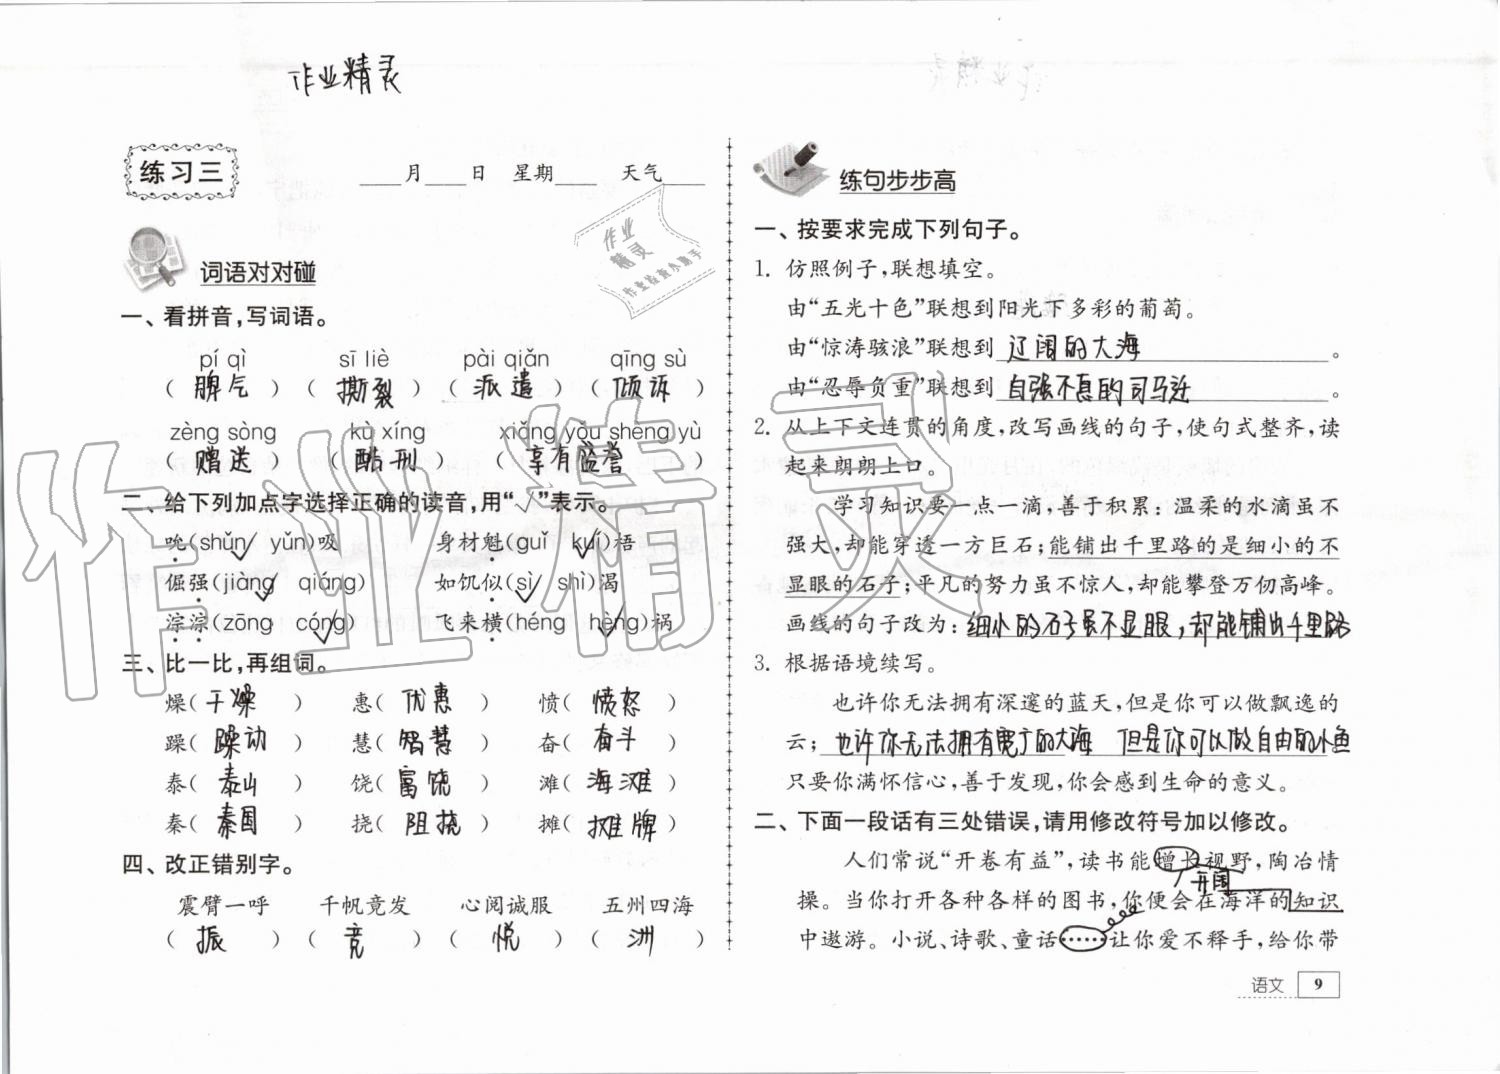 作业精灵
练习三
____月____日 星期____ 天气____
作业
精灵
词语对对碰
一、看拼音,写词语。
pí qì sī liè pài qiǎn qīng sù
( 脾气 ) ( 撕裂 ) ( 派遣 ) ( 倾诉 )
zèng sòng kù xíng xiǎng yǒu shèng yù
( 赠送 ) ( 酷刑 ) ( 享有盛誉 )
二、给下列加点字选择正确的读音,用“√”表示。
吮(shǔn√ yǔn)吸 身材魁(guǐ kuí√)梧
倔强(jiàng√ qiáng) 如饥似(sì√ shì)渴
淙淙(zōng cóng√) 飞来横(héng hèng√)祸
三、比一比,再组词。
燥( 干燥 ) 惠( 优惠 ) 愤( 愤怒 )
躁( 躁动 ) 慧( 智慧 ) 奋( 奋斗 )
泰( 泰山 ) 饶( 富饶 ) 滩( 海滩 )
秦( 秦国 ) 挠( 阻挠 ) 摊( 摊牌 )
四、改正错别字。
震臂一呼 千帆竟发 心阅诚服 五州四海
( 振 ) ( 竞 ) ( 悦 ) ( 洲 )
练句步步高
一、按要求完成下列句子。
1. 仿照例子,联想填空。
由“五光十色”联想到阳光下多彩的葡萄。
由“惊涛骇浪”联想到 辽阔的大海 。
由“忍辱负重”联想到 自强不息的司马迁 。
2. 从上下文连贯的角度,改写画线的句子,使句式整齐,读
起来朗朗上口。
学习知识要一点一滴,善于积累:温柔的水滴虽不
强大,却能穿透一方巨石;能铺出千里路的是细小的不
显眼的石子;平凡的努力虽不惊人,却能攀登万仞高峰。
画线的句子改为:细小的石子虽不显眼,却能铺出千里路
3. 根据语境续写。
也许你无法拥有深邃的蓝天,但是你可以做飘逸的
云;也许你无法拥有宽广的大海 但是你可以做自由的小鱼
只要你满怀信心,善于发现,你会感到生命的意义。
二、下面一段话有三处错误,请用修改符号加以修改。
人们常说“开卷有益”,读书能增长视野,陶冶情
开阔
操。当你打开各种各样的图书,你便会在海洋的知识
中遨游。小说、诗歌、童话……让你爱不释手,给你带
语文 9